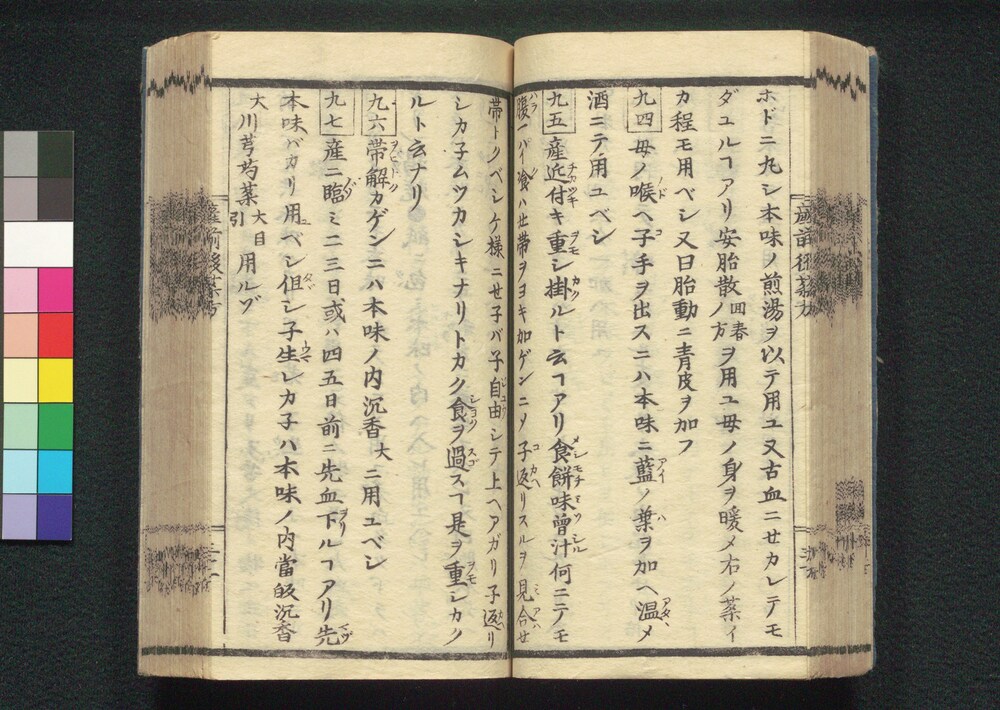 ホドニ九シ本味ノ煎湯ヲ以テ用ユ又古血ニセカレテモ
ダユルヿアリ安胎散回春ノ方ヲ用ユ母ノ身ヲ暖メ右ノ薬イ
カ程モ用ベシ又曰胎動ニ青皮ヲ加フ
九四 母ノ喉ヘ子手ヲ出スニハ本味ニ藍ノ葉ヲ加ヘ温メ
酒ニテ用ユベシ
九五 産近付キ重シ掛ルト云ヿアリ食餅味噌汁何ニテモ
腹一パイ喰ハせ帯ヲヨキ加ゲンニメ子返リスルヲ見合せ
帯トクベシケ様ニせ子バ子自由シテ上ヘアガリ子返リ
シカ子ムツカシキナリトカク食ヲ過スヿ是ヲ重シカク
ルト云ナリ
九六 帯解カゲンニハ本味ノ内沉香大ニ用ユベシ
九七 産ニ臨ミ二三日或ハ四五日前ニ先血下ルヿアリ先
本味バカリ用ベシ但シ子生レカ子ハ本味ノ内當皈沉香
大川芎芍薬大目引用ルヅ